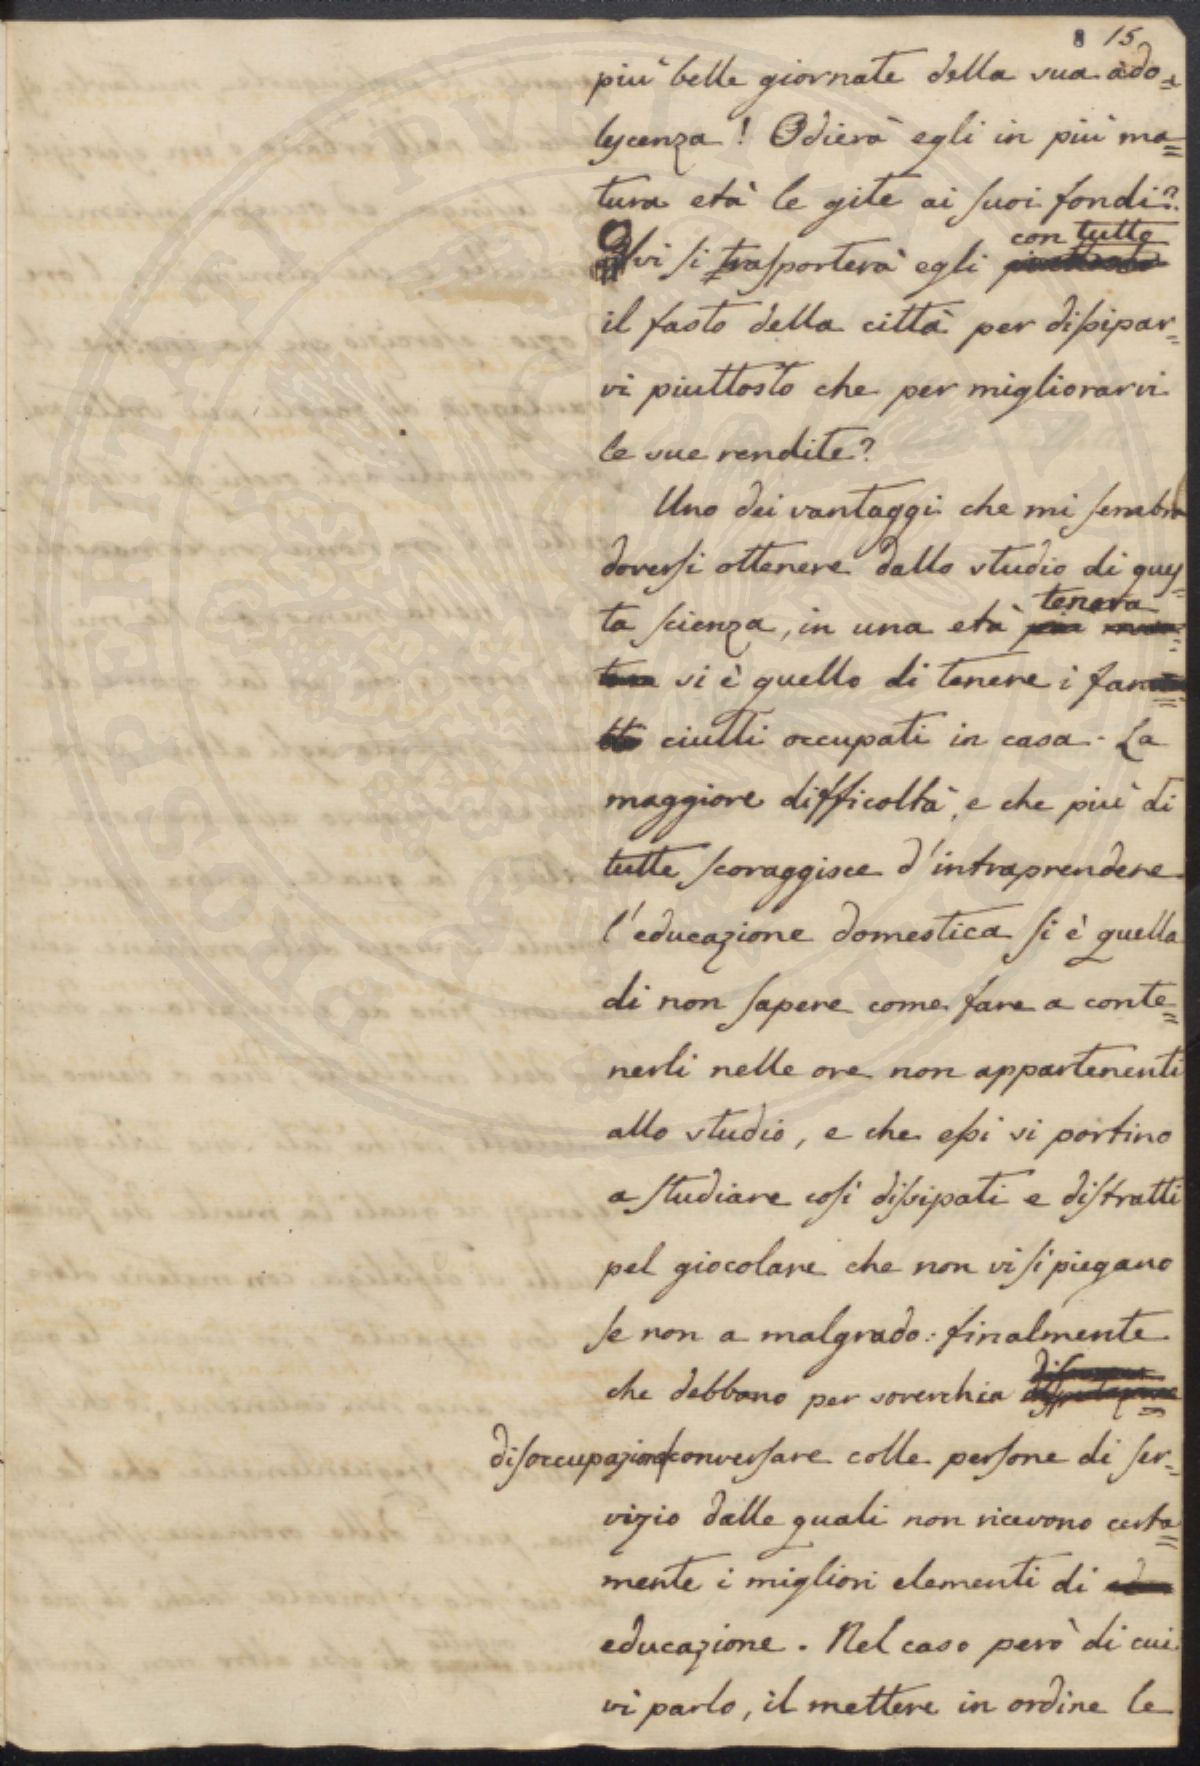 8 15
più belle giornate della sua ado=
lescenza! Odierà egli in più ma=
tura età le gite ai suoi fondi?
con tutto
Ovvi si trasporterà egli
il fasto della città per dissipar=
vi piuttosto che per migliorarvi
le sue rendite?
Uno dei vantaggi che mi sembra
doversi ottenere dallo studio di ques=
tenera
ta scienza, in una età più matu=
tura si è quello di tenere i fan
ciulli occupati in casa. La
maggiore difficoltà, e che più di
tutte scoraggisce d'intraprendere
l'educazione domestica si è quella
di non sapere come fare a conte=
nerli nelle ore non appartenenti
allo studio, e che essi vi portino
a studiare così dissipati e distratti
pel giocolare che non vi si piegano
se non a malgrado: finalmente
che debbano per soverchia
disoccupazione conversare colle persone di ser=
vizio dalle quali non ricevono certa=
mente i migliori elementi di edu
educazione. Nel caso però di cui
vi parlo, il mettere in ordine le
PROSPERITATI PVBLICAE AVGENDAE